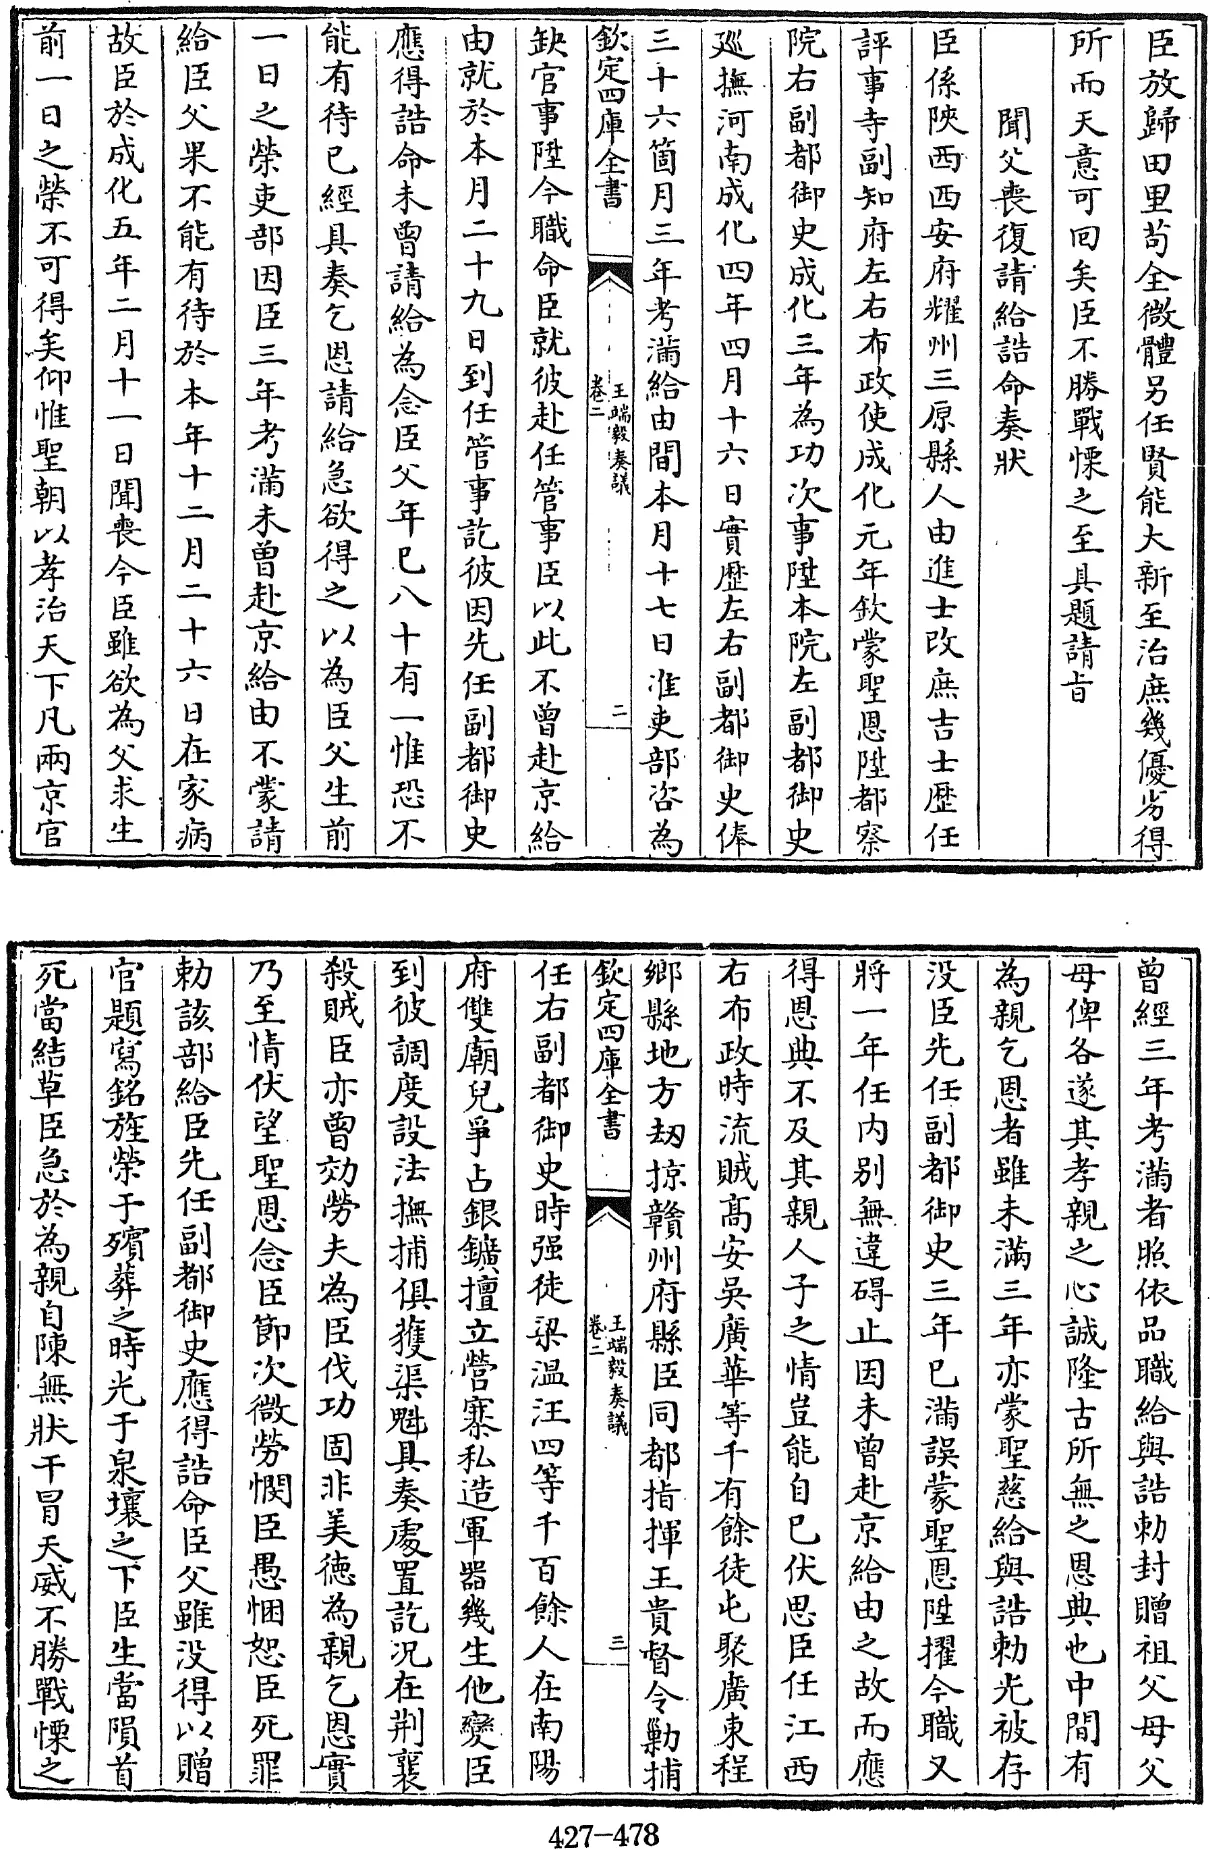 臣放歸田里苟全微體另任賢能大新至治庶幾優劣得
所而天意可回矣臣不勝戰慄之至具題請旨
聞父喪復請給誥命奏狀
臣係陝西西安府耀州三原縣人由進士改庶吉士歴任
評事寺副知府左右布政使成化元年欽蒙聖恩陞都察
院右副都御史成化三年為功次事陞本院左副都御史
廵撫河南成化四年四月十六日實歴左右副都御史俸
三十六箇月三年考滿給由間本月十七日准吏部咨為
欽定四庫全書
王端毅奏議
卷二
二
缺官事陞今職命臣就彼赴任管事臣以此不曾赴京給
由就於本月二十九日到任管事訖彼因先任副都御史
應得誥命未曾請給為念臣父年已八十有一惟恐不
能有待已經具奏乞恩請給急欲得之以為臣父生前
一日之榮吏部因臣三年考滿未曾赴京給由不蒙請
給臣父果不能有待於本年十二月二十六日在家病
故臣於成化五年二月十一日聞喪今臣雖欲為父求生
前一日之榮不可得矣仰惟聖朝以孝治天下凡兩京官
曾經三年考滿者照依品職給與誥勅封贈祖父母父
母俾各遂其孝親之心誠隆古所無之恩典也中間有
為親乞恩者雖未滿三年亦蒙聖慈給與誥勅光被存
没臣先任副都御史三年已滿誤蒙聖恩陞擢今職又
將一年任内别無違碍止因未曾赴京給由之故而應
得恩典不及其親人子之情豈能自已伏思臣任江西
右布政時流賊髙安吳廣華等千有餘徒屯聚廣東程
鄉縣地方刼掠贛州府縣臣同都指揮王貴督令勦捕
欽定四庫全書
王端毅奏議
卷二
三
任右副都御史時强徒梁温汪四等千百餘人在南陽
府雙廟兒爭占銀鑛擅立營寨私造軍器幾生他變臣
到彼調度設法撫捕俱獲渠魁具奏處置訖况在荆襄
殺賊臣亦曾効勞夫為臣伐功固非美徳為親乞恩實
乃至情伏望聖恩念臣節次微勞憫臣愚悃恕臣死罪
勅該部給臣先任副都御史應得誥命臣父雖没得以贈
官題寫銘旌榮于殯葬之時光于泉壤之下臣生當隕首
死當結草臣急於為親自陳無狀干冒天威不勝戰慄之
427-478